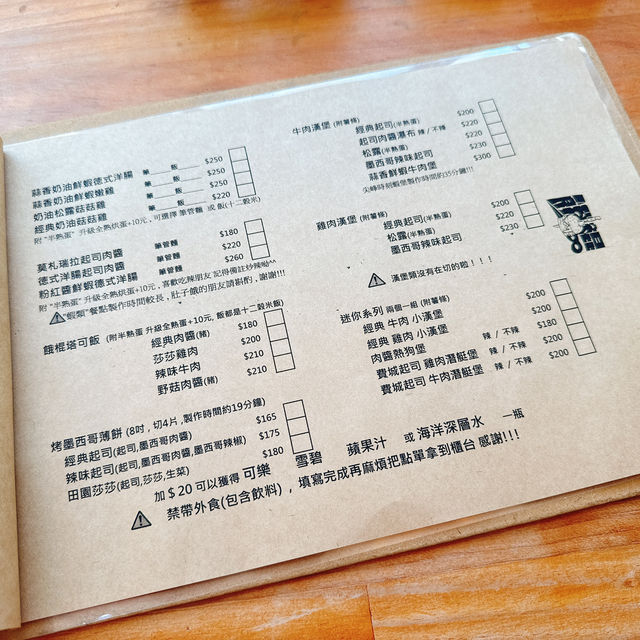 蒜香奶油鮮蝦德式洋腸 筆___飯___ $250
蒜香奶油鮮蝦嫩雞 筆___飯___ $250
奶油松露菇菇雞 筆___飯___ $250
經典奶油菇菇雞 筆___飯___ $220
附 "半熟蛋" 升級全熟烘蛋+10元, 可選擇 筆管麵 或 飯(十二穀米)
莫札瑞拉起司肉醬 筆管麵 $180
德式洋腸起司肉醬 筆管麵 $220
粉紅醬鮮蝦德式洋腸 筆管麵 $260
附 "半熟蛋" 升級全熟烘蛋+10元, 喜歡吃辣朋友 記得備註炒辣呦^^
"蝦類" 餐點製作時間較長, 肚子餓的朋友請斟酌, 謝謝!!!
餓棍塔可飯 (附半熟蛋 升級全熟蛋+10元, 飯都是十二穀米飯)
經典肉醬(豬) $180
莎莎雞肉 $200
辣味牛肉 $210
野菇肉醬(豬) $210
烤墨西哥薄餅 (8吋, 切4片, 製作時間約19分鐘)
經典起司(起司,墨西哥肉醬) $165
辣味起司(起司,墨西哥肉醬,墨西哥辣椒) $175
田園莎莎(起司,莎莎,生菜) $180
牛肉漢堡 (附薯條)
經典起司(半熟蛋) $200
起司肉醬瀑布 辣 / 不辣 $220
松露(半熟蛋) $220
墨西哥辣味起司 $230
蒜香鮮蝦牛肉堡 $300
尖峰時刻蝦堡製作時間約35分鐘!!!
雞肉漢堡 (附薯條)
經典起司(半熟蛋) $200
松露(半熟蛋) $220
墨西哥辣味起司 $230
漢堡類沒有在切的啦!!!
迷你系列 兩個一組 (附薯條)
經典 牛肉 小漢堡 $200
經典 雞肉 小漢堡 $200
肉醬熱狗堡 辣 / 不辣 $180
費城起司 雞肉潛艇堡 辣 / 不辣 $200
費城起司 牛肉潛艇堡 辣 / 不辣 $200
加 $ 20 可以獲得 可樂 雪碧 蘋果汁 或 海洋深層水 一瓶
禁帶外食(包含飲料), 填寫完成再麻煩把點單拿到櫃台 感謝!!!